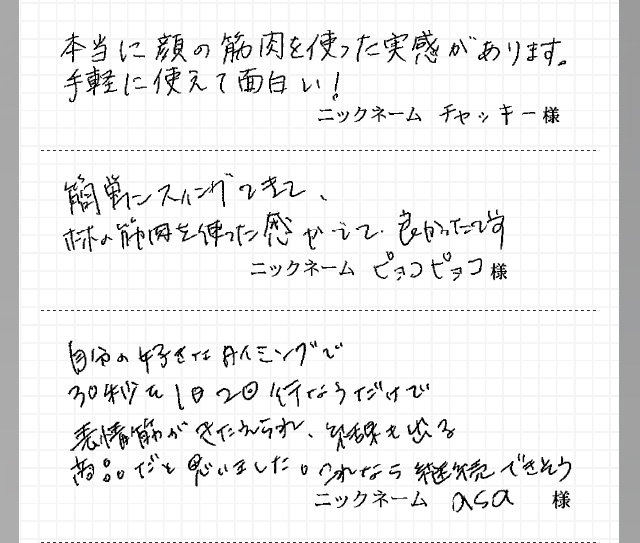 本当に顔の筋肉を使った実感があります。
手軽に使えて面白い!
ニックネーム チャッキー様
簡単にスイングできて、
の筋肉を使った感がでて、良かったです
ニックネーム ピヨコピヨコ様
自分の好きなタイミングで
30秒を1日2回行なうだけで
表情筋がきたえられ、結果も出る
商品だと思いました。これなら継続できそう
ニックネーム asa 様